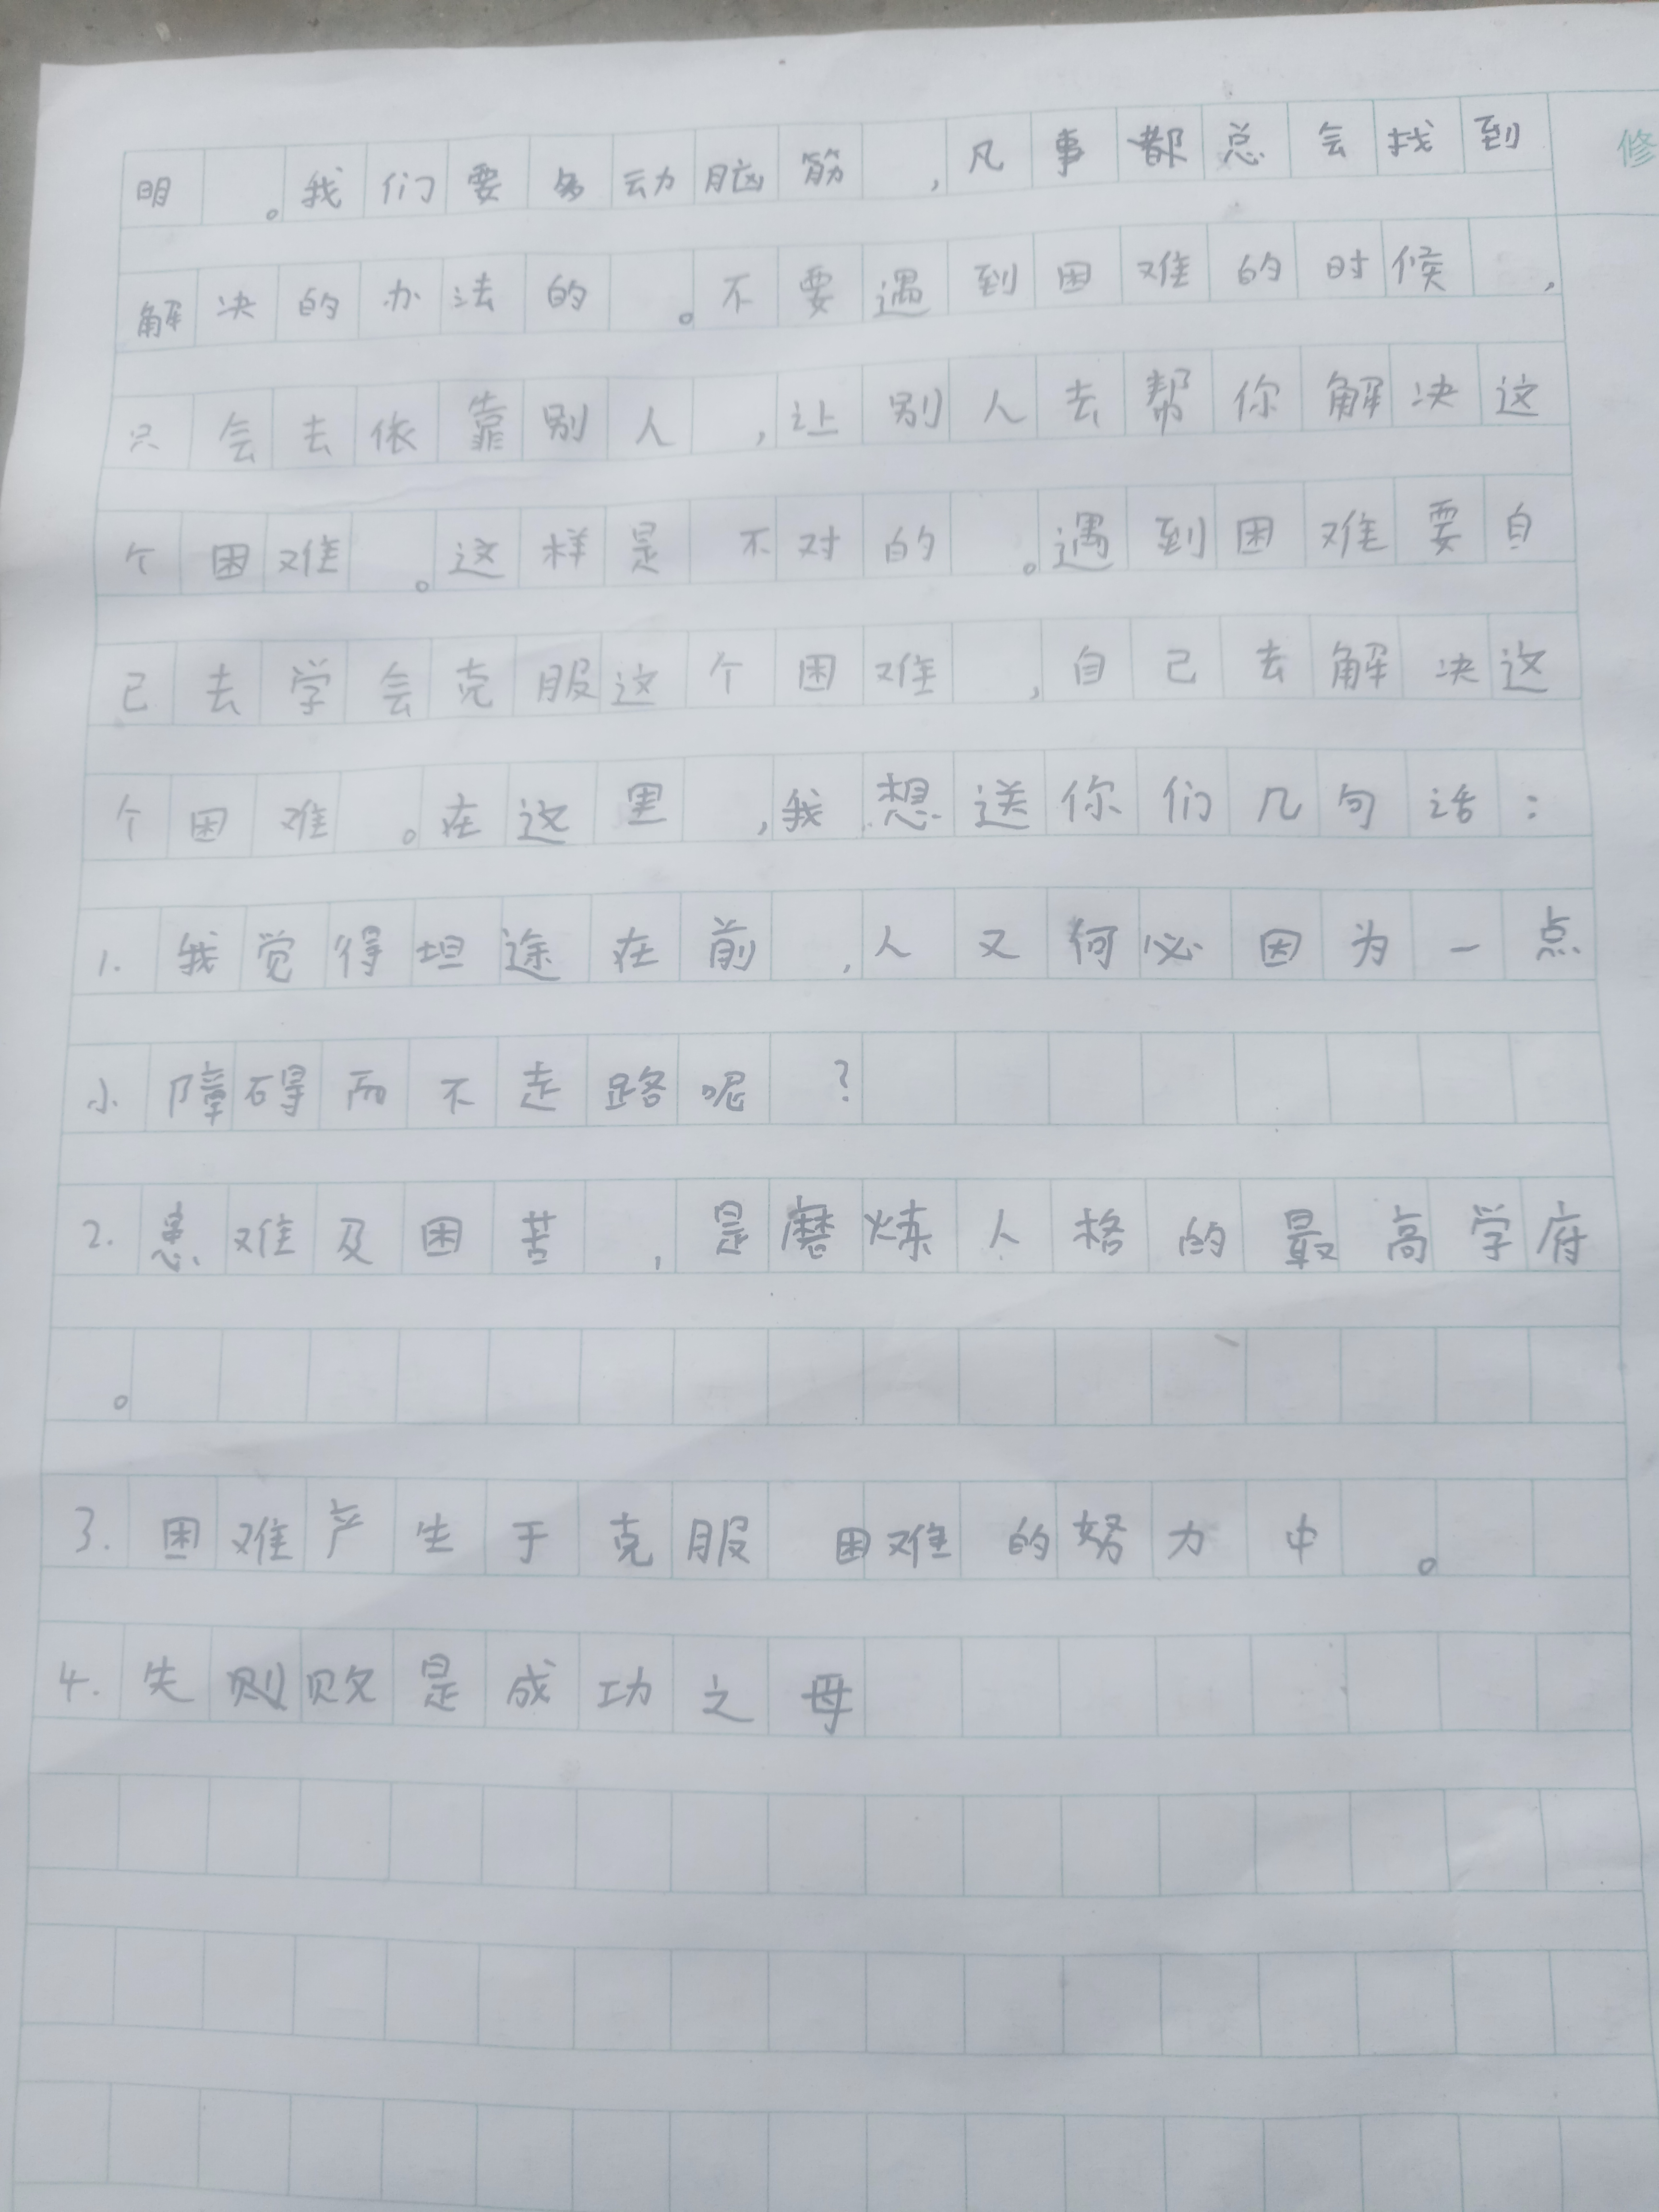 明。我们要多动脑筋,凡事都总会找到
修
解决的办法的。不要遇到困难的时候,
只会去依靠别人,让别人去帮你解决这
个困难。这样是不对的。遇到困难要自
己去学会克服这个困难,自己去解决这
个困难。在这里,我想送你们几句话:
1.我觉得坦途在前,人又何必因为一点
小障碍而不走路呢?
2.患难及困苦,是磨炼人格的最高学府
。
3.困难产生于克服困难的努力中。
4.失则败是成功之母